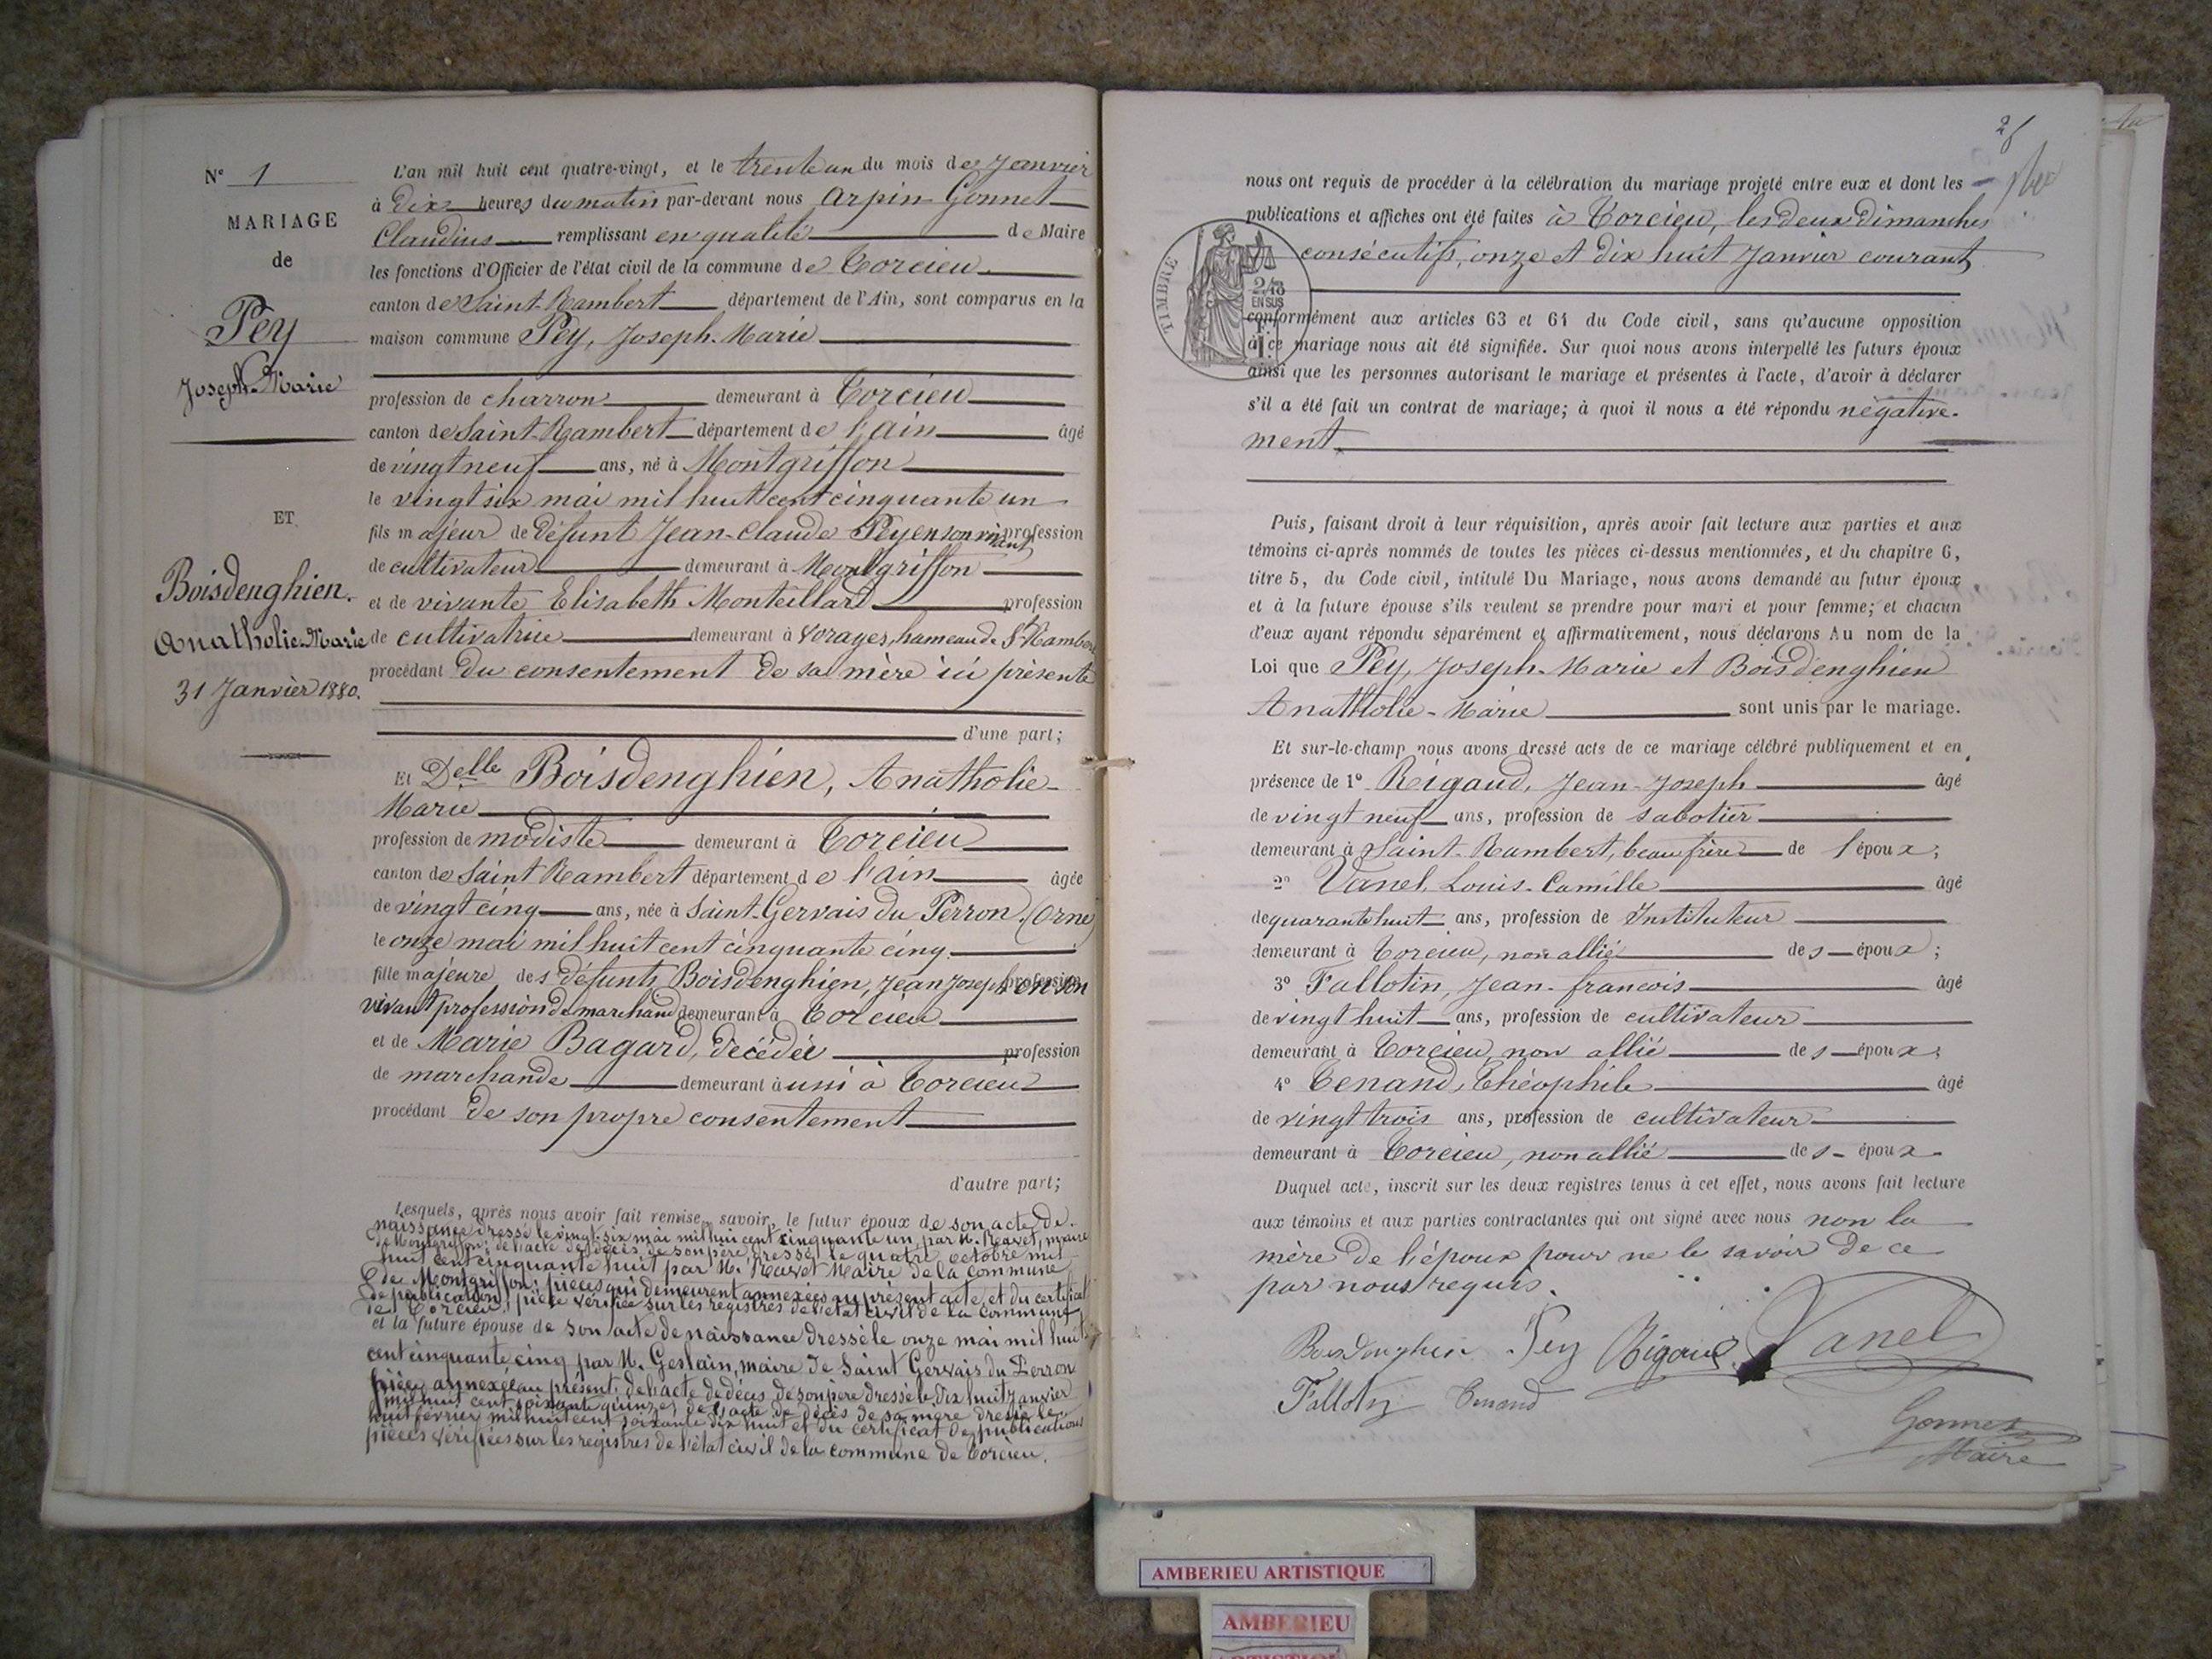 N° 1
MARIAGE
de
Pey
Joseph-Marie
ET
Boisdenghien.
Anatholie-Marie
31 Janvier 1880.
L'an mil huit cent quatre-vingt, et le trente un du mois de Janvier
à dix heures du matin par-devant nous Arpin Gonnet
Claudius remplissant en qualité de Maire
les fonctions d'Officier de l'état civil de la commune de Torcieu
canton de Saint-Rambert département de l'Ain, sont comparus en la
maison commune Pey, Joseph-Marie
profession de charron demeurant à Torcieu
canton de Saint-Rambert département de l'ain âgé
de vingt neuf ans, né à Montgriffon
le vingt six mai mil huit cent cinquante un
fils majeur de défunt Jean-Claude Pey en son vivant profession
de cultivateur demeurant à Montgriffon
et de vivante Elisabeth Monteillard profession
de cultivatrice demeurant à Vorages, hameau de St Rambert
procédant du consentement de sa mère ici présente
d'une part;
Et Delle Boisdenghien, Anatholie-
Marie
profession de modiste demeurant à Torcieu
canton de Saint Rambert département de l'ain âgée
de vingt cinq ans, née à Saint-Gervais du Perron (Orne)
le onze mai mil huit cent cinquante cinq
fille majeure des défunts Boisdenghien, Jean Joseph en son
vivant profession de marchand demeurant à Torcieu
et de Marie Bagard, décédée profession
de marchande demeurant aussi à Torcieu
procédant de son propre consentement
d'autre part;
Lesquels, après nous avoir fait remise, savoir, le futur époux de son acte de
naissance dressé le vingt-six mai mil huit cent cinquante un, par M. Ravet, maire
de Montgriffon; de l'acte de décès de son père dressé le quatre octobre mil
huit cent cinquante huit par M. Ravet Maire de la commune
de Montgriffon; pièces qui demeurent annexées au présent acte, et du certificat
de publication, pièce vérifiée sur les registres de l'état civil de la commune
de Torcieu.
et la future épouse de son acte de naissance dressé le onze mai mil huit
cent cinquante cinq par M. Geslain, maire de Saint Gervais du Perron
pièce annexée au présent, de l'acte de décès de son père dressé le dix huit janvier
mil huit cent soixante quinze, de l'acte de décès de sa mère dressé le
huit février mil huit cent soixante dix huit et du certificat de publications
pièces vérifiées sur les registres de l'état civil de la commune de Torcieu.
2
nous ont requis de procéder à la célébration du mariage projeté entre eux et dont les
publications et affiches ont été faites à Torcieu, les deux dimanches
consécutifs, onze et dix huit Janvier courant
TIMBRE
2/10
EN SUS
conformément aux articles 63 et 64 du Code civil, sans qu'aucune opposition
à ce mariage nous ait été signifiée. Sur quoi nous avons interpellé les futurs époux
ainsi que les personnes autorisant le mariage et présentes à l'acte, d'avoir à déclarer
s'il a été fait un contrat de mariage; à quoi il nous a été répondu négative-
ment.
Puis, faisant droit à leur réquisition, après avoir fait lecture aux parties et aux
témoins ci-après nommés de toutes les pièces ci-dessus mentionnées, et du chapitre 6,
titre 5, du Code civil, intitulé Du Mariage, nous avons demandé au futur époux
et à la future épouse s'ils veulent se prendre pour mari et pour femme; et chacun
d'eux ayant répondu séparément et affirmativement, nous déclarons Au nom de la
Loi que Pey, Joseph-Marie et Boisdenghien
Anatholie-Marie sont unis par le mariage.
Et sur-le-champ nous avons dressé acte de ce mariage célébré publiquement et en
présence de 1° Rigaud, Jean-Joseph âgé
de vingt neuf ans, profession de sabotier
demeurant à Saint-Rambert, beau frère de l'époux;
2° Vanel, Louis-Camille âgé
de quarante huit ans, profession de Instituteur
demeurant à Torcieu, non allié des époux;
3° Fallotin, Jean-francois âgé
de vingt huit ans, profession de cultivateur
demeurant à Torcieu, non allié des époux;
4° Tenand, Théophile âgé
de vingt trois ans, profession de cultivateur
demeurant à Torcieu, non allié des époux
Duquel acte, inscrit sur les deux registres tenus à cet effet, nous avons fait lecture
aux témoins et aux parties contractantes qui ont signé avec nous non la
mère de l'époux pour ne le savoir de ce
par nous requis.
Boisdenghien Pey Rigaud Vanel
Fallotin Tenand
Gonnet
Maire
AMBERIEU ARTISTIQUE
AMBERIEU
ARTISTIQUE